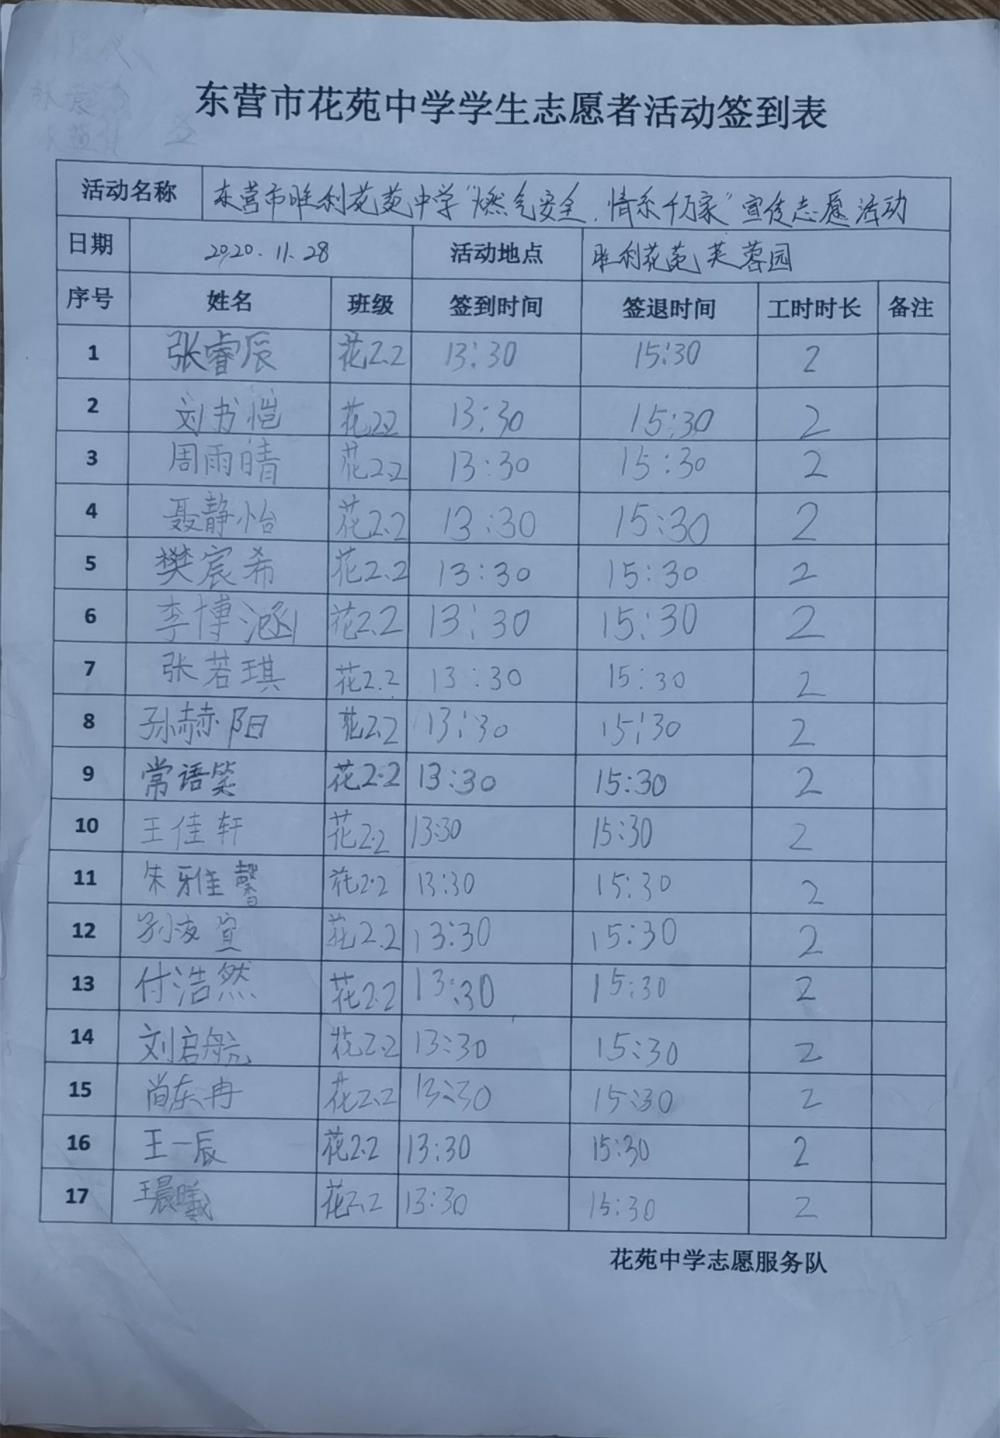 东营市花苑中学学生志愿者活动签到表
活动名称 东营市胜利花苑中学“燃气安全,情系千万家”宣传志愿活动
日期 2020.11.28 活动地点 胜利花苑芙蓉园
序号 姓名 班级 签到时间 签退时间 工时时长 备注
1 张睿辰 花2.2 13:30 15:30 2
2 刘书恺 花2.2 13:30 15:30 2
3 周雨晴 花2.2 13:30 15:30 2
4 聂静怡 花2.2 13:30 15:30 2
5 樊宸希 花2.2 13:30 15:30 2
6 李博涵 花2.2 13:30 15:30 2
7 张若琪 花2.2 13:30 15:30 2
8 孙赫阳 花2.2 13:30 15:30 2
9 常语笑 花2.2 13:30 15:30 2
10 王佳轩 花2.2 13:30 15:30 2
11 朱雅馨 花2.2 13:30 15:30 2
12 花2.2 13:30 15:30 2
13 付浩然 花2.2 13:30 15:30 2
14 刘启航 花2.2 13:30 15:30 2
15 尚东冉 花2.2 13:30 15:30 2
16 王一辰 花2.2 13:30 15:30 2
17 王晨曦 花2.2 13:30 15:30 2
花苑中学志愿服务队